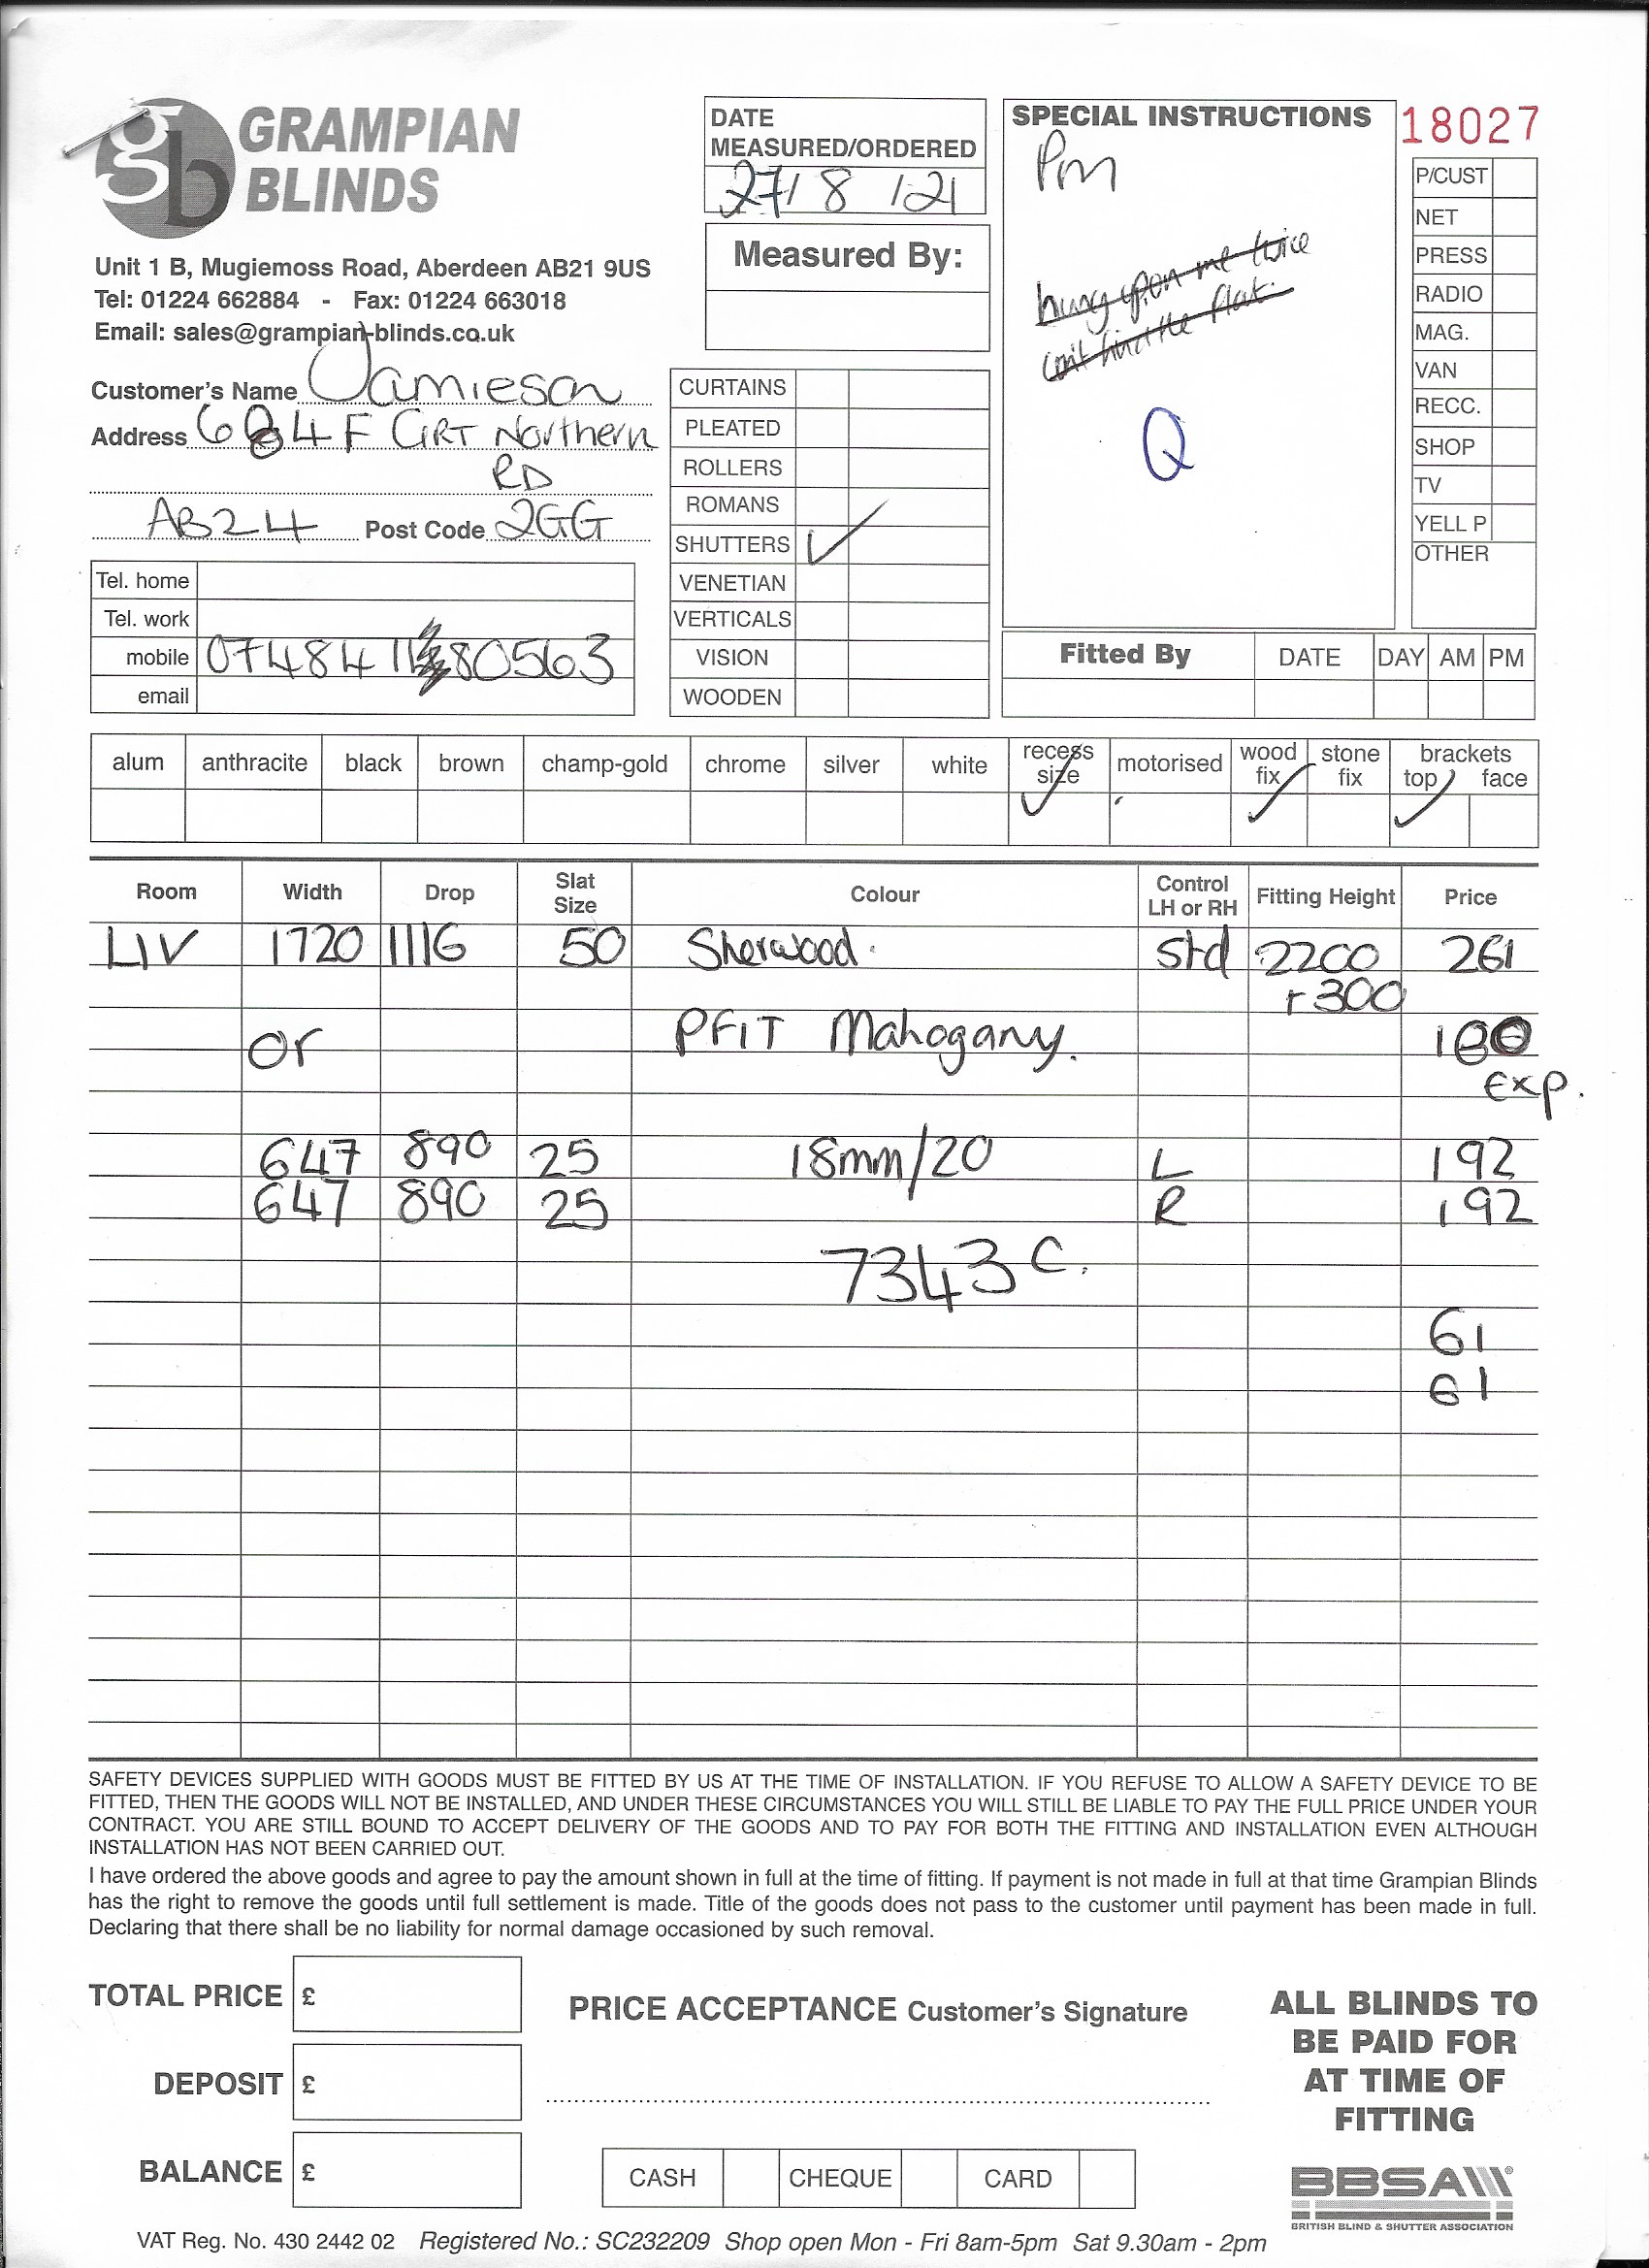 GRAMPIAN
BLINDS
Unit 1 B, Mugiemoss Road, Aberdeen AB21 9US
Tel: 01224 662884 - Fax: 01224 663018
Email: sales@grampian-blinds.co.uk
Customer's Name Jamieson
Address 604F GRT Northern
RD
AB24 Post Code 2GG
Tel. home
Tel. work
mobile 07484 11 80563
email
DATE
MEASURED/ORDERED
27/8/21
Measured By:
CURTAINS
PLEATED
ROLLERS
ROMANS
SHUTTERS ✓
VENETIAN
VERTICALS
VISION
WOODEN
SPECIAL INSTRUCTIONS
Pm
hung up on me twice
can't find the flat.
Q
18027
P/CUST
NET
PRESS
RADIO
MAG.
VAN
RECC.
SHOP
TV
YELL P
OTHER
Fitted By DATE DAY AM PM
alum anthracite black brown champ-gold chrome silver white recess size ✓ motorised wood fix ✓ stone fix brackets top ✓ face
Room Width Drop Slat Size Colour Control LH or RH Fitting Height Price
LIV 1720 1116 50 Sherwood. Std 2200 261
r300
or PFIT Mahogany.
Exp.
647 890 25 18mm/20 L 192
647 890 25 R 192
7343 C.
61
61
SAFETY DEVICES SUPPLIED WITH GOODS MUST BE FITTED BY US AT THE TIME OF INSTALLATION. IF YOU REFUSE TO ALLOW A SAFETY DEVICE TO BE
FITTED, THEN THE GOODS WILL NOT BE INSTALLED, AND UNDER THESE CIRCUMSTANCES YOU WILL STILL BE LIABLE TO PAY THE FULL PRICE UNDER YOUR
CONTRACT. YOU ARE STILL BOUND TO ACCEPT DELIVERY OF THE GOODS AND TO PAY FOR BOTH THE FITTING AND INSTALLATION EVEN ALTHOUGH
INSTALLATION HAS NOT BEEN CARRIED OUT.
I have ordered the above goods and agree to pay the amount shown in full at the time of fitting. If payment is not made in full at that time Grampian Blinds
has the right to remove the goods until full settlement is made. Title of the goods does not pass to the customer until payment has been made in full.
Declaring that there shall be no liability for normal damage occasioned by such removal.
TOTAL PRICE £
DEPOSIT £
BALANCE £
PRICE ACCEPTANCE Customer's Signature
CASH CHEQUE CARD
ALL BLINDS TO
BE PAID FOR
AT TIME OF
FITTING
BBSA
BRITISH BLIND & SHUTTER ASSOCIATION
VAT Reg. No. 430 2442 02 Registered No.: SC232209 Shop open Mon - Fri 8am-5pm Sat 9.30am - 2pm